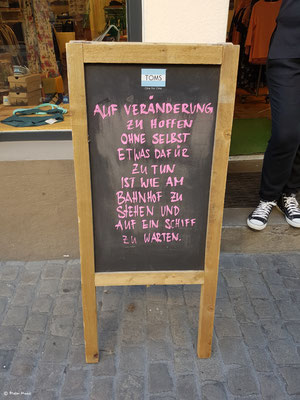 TOMS
AUF VERÄNDERUNG
ZU HOFFEN
OHNE SELBST
ETWAS DAFÜR
ZU TUN
IST WIE AM
BAHNHOF ZU
STEHEN UND
AUF EIN SCHIFF
ZU WARTEN.